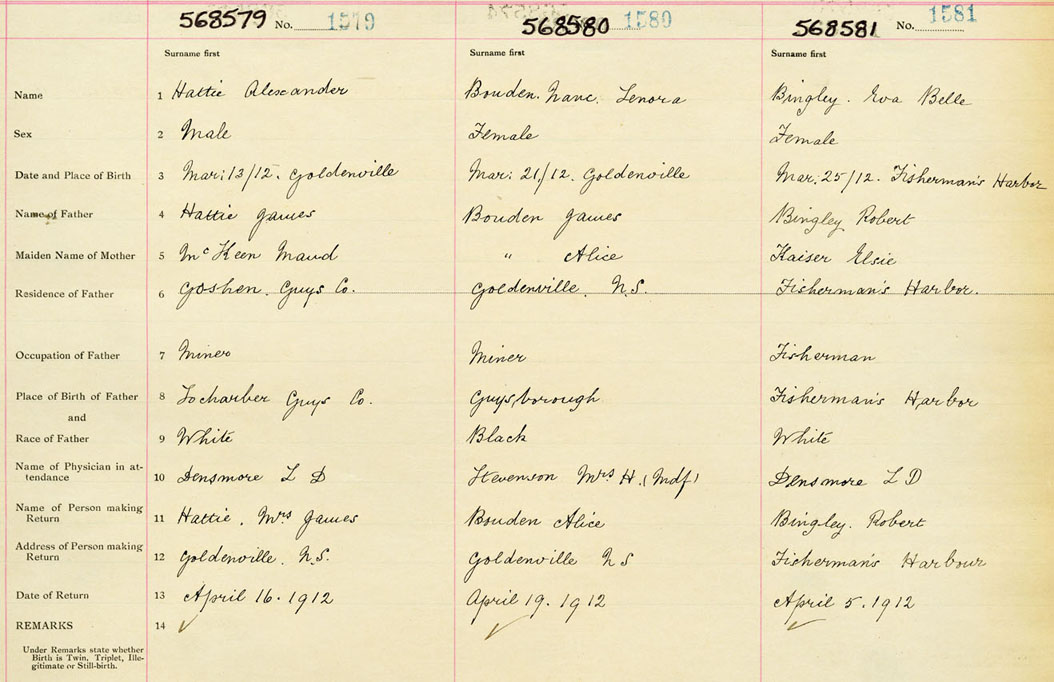 568579 No. 1579 568580 1580 568581 No. 1581
Surname first Surname first Surname first
Name 1 Hattie Alexander Bouden. Lenora Bingley. Eva Belle
Sex 2 Male Female Female
Date and Place of Birth 3 Mar: 13/12. Goldenville Mar: 21/12. Goldenville Mar. 25/12. Fisherman's Harbor
Name of Father 4 Hattie James Bouden James Bingley Robert
Maiden Name of Mother 5 McKeen Maud " Alice Kaiser Elsie
Residence of Father 6 Goshen. Guys Co. Goldenville. N.S. Fisherman's Harbor.
Occupation of Father 7 Miner Miner Fisherman
Place of Birth of Father 8 Locharber Guys Co. Guysborough Fisherman's Harbor
and
Race of Father 9 White Black White
Name of Physician in at-
tendance 10 Densmore L D Stevenson Mrs H. (Mdf) Densmore L D
Name of Person making
Return 11 Hattie. Mrs James Bouden Alice Bingley. Robert
Address of Person making
Return 12 Goldenville. N.S. Goldenville N S Fisherman's Harbour
Date of Return 13 April 16. 1912 April 19. 1912 April 5. 1912
REMARKS 14
Under Remarks state whether
Birth is Twin, Triplet, Ille-
gitimate or Still-birth.